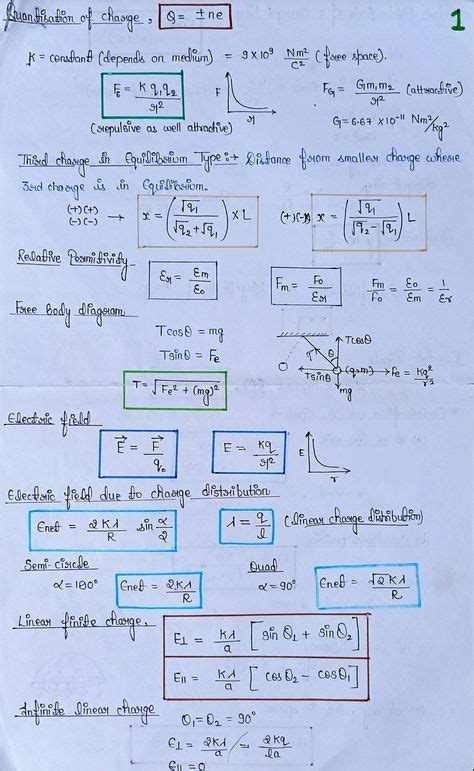 Quantisation of charge, Q = ±ne
1
K = constant (depends on medium) = 9 × 10⁹ Nm²/C² (free space).
F_E = K q₁q₂/r²
F
r
F_G = Gm₁m₂/r² (attractive)
(repulsive as well attractive)
G = 6.67 × 10⁻¹¹ Nm²/kg²
Third charge in Equilibrium Type :→ Distance from smaller charge where
3rd charge is in Equilibrium.
(+)(+)
(-)(-)
→ x = (√q₁/(√q₂+√q₁)) × L
(+)(-) x = (√q₁/(√q₂-√q₁)) L
Relative Permitivity
Ɛr = Ɛm/Ɛ₀
Fm = F₀/Ɛr
Fm/F₀ = Ɛ₀/Ɛm = 1/Ɛr
Free body diagram
Tcosθ = mg
Tsinθ = Fe
T = √(Fe² + (mg)²)
Tcosθ
T
θ
Tsinθ
(q,m)
Fe = Kq²/r²
mg
Electric field
E⃗ = F⃗/q₀
E = Kq/r²
E
r
Electric field due to charge distribution
Enet = 2Kλ/R sin α/2
λ = q/l (linear charge distribution)
Semi-circle
α = 180°
Enet = 2Kλ/R
Quad
α = 90°
Enet = √2 Kλ/R
Linear finite charge,
E⊥ = Kλ/a [sin θ₁ + sin θ₂]
E॥ = Kλ/a [cos θ₂ - cos θ₁]
Infinite linear charge
θ₁ = θ₂ = 90°
E⊥ = 2Kλ/a = 2Kq/la
E॥ = 0